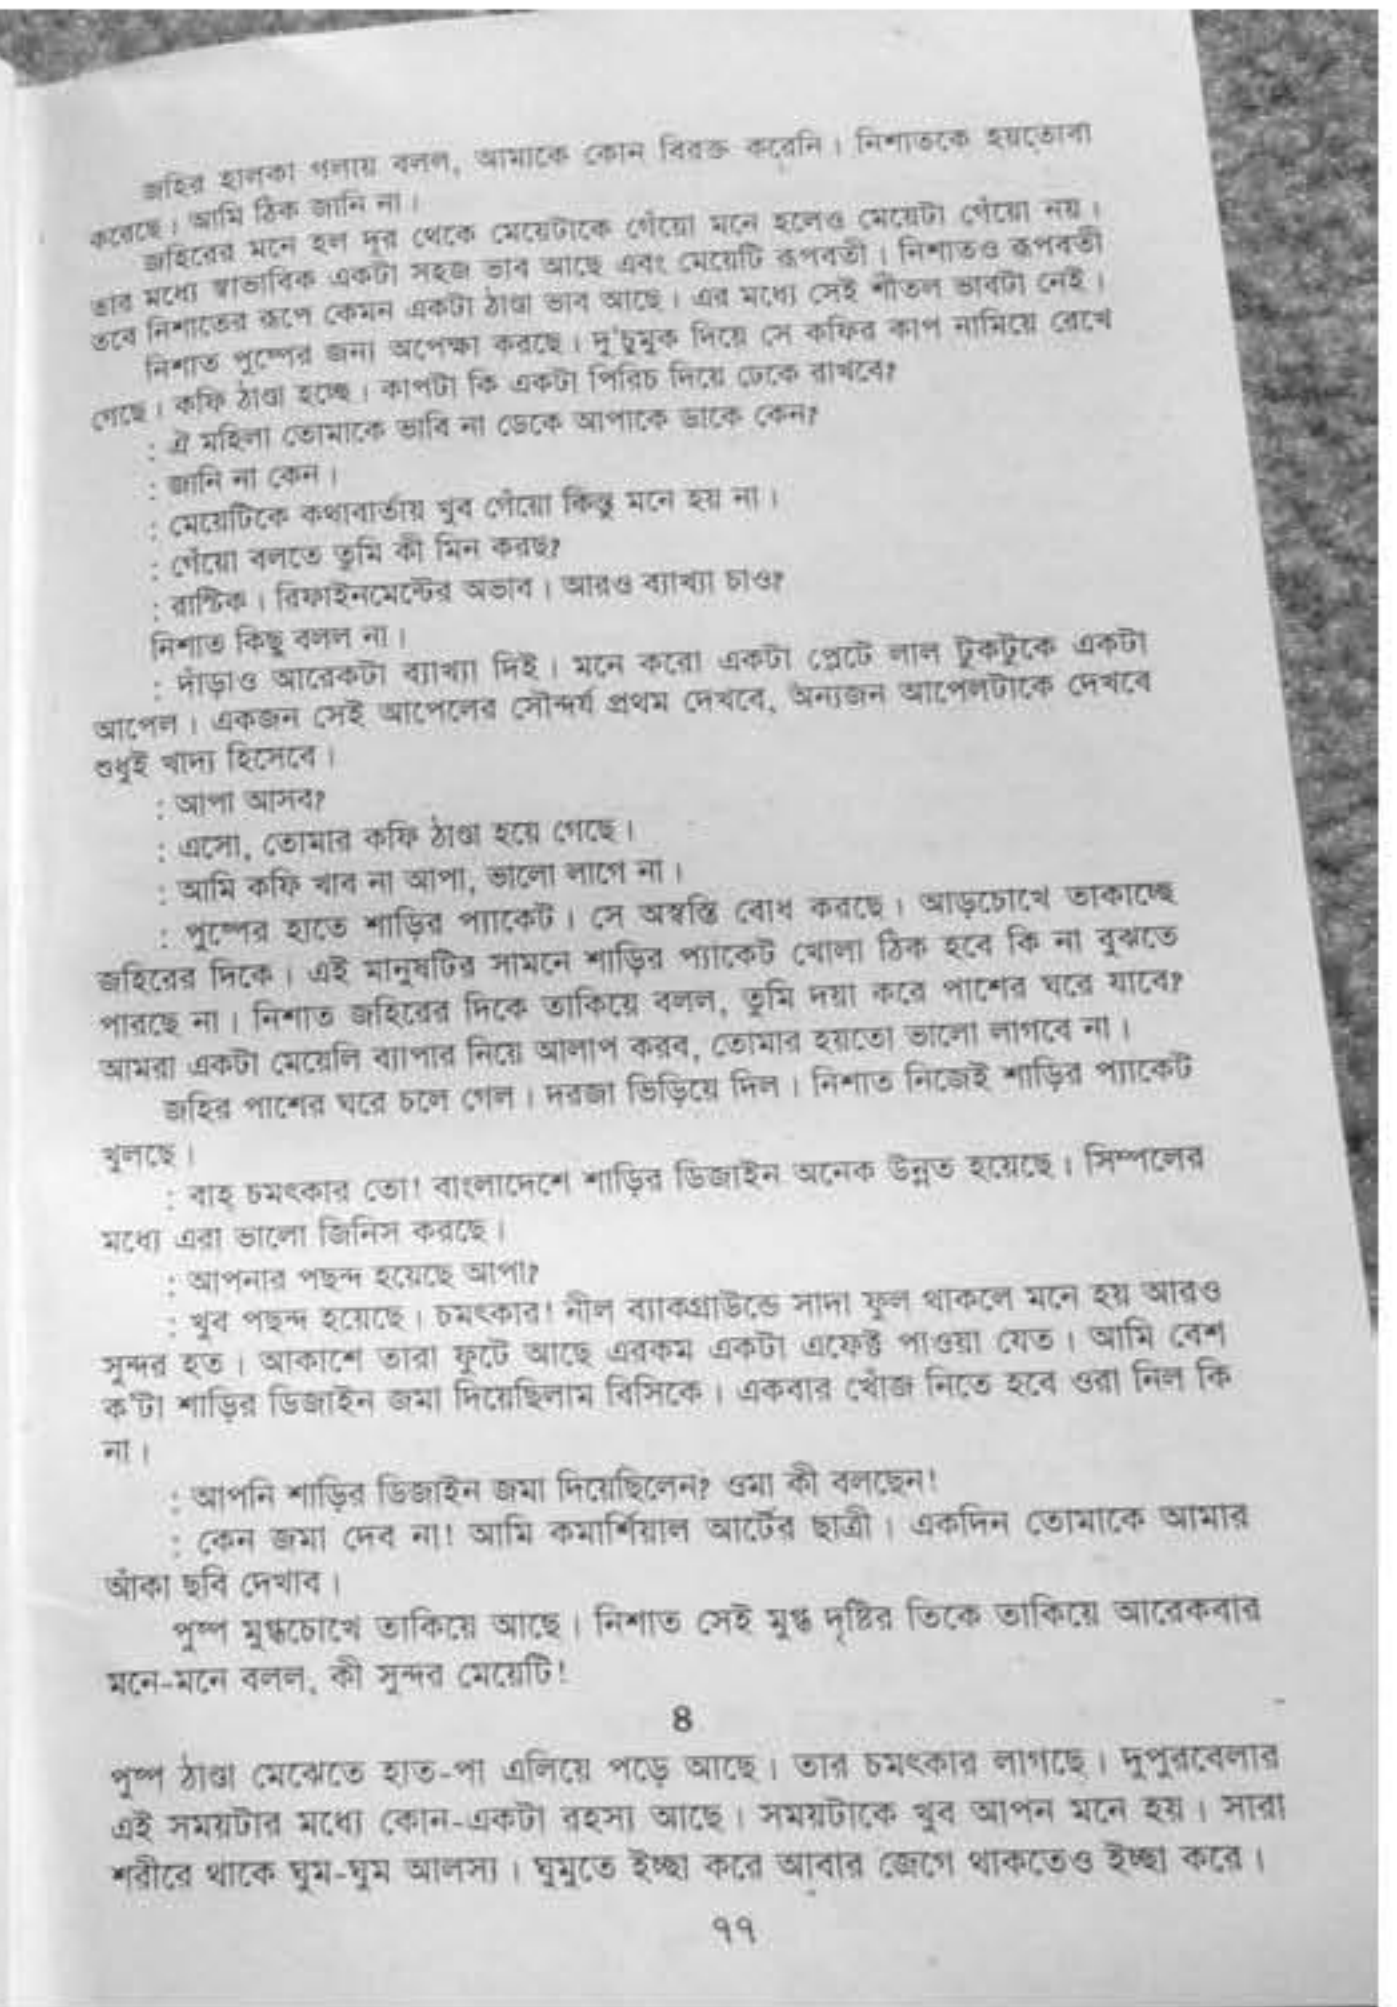 জহির হালকা গলায় বলল, আমাকে কোন বিরক্ত করেনি। নিশাতকে হয়তোবা
করেছে। আমি ঠিক জানি না।
জহিরের মনে হল দূর থেকে মেয়েটাকে গেঁয়ো মনে হলেও মেয়েটা গেঁয়ো নয়।
তার মধ্যে স্বাভাবিক একটা সহজ ভাব আছে এবং মেয়েটি রূপবতী। নিশাতও রূপবতী
তবে নিশাতের রূপে কেমন একটা ঠাণ্ডা ভাব আছে। এর মধ্যে সেই শীতল ভাবটা নেই।
নিশাত পুষ্পের জন্য অপেক্ষা করছে। দু'চুমুক দিয়ে সে কফির কাপ নামিয়ে রেখে
গেছে। কফি ঠাণ্ডা হচ্ছে। কাপটা কি একটা পিরিচ দিয়ে ঢেকে রাখবে?
: ঐ মহিলা তোমাকে ভাবি না ডেকে আপাকে ডাকে কেন?
: জানি না কেন।
: মেয়েটিকে কথাবার্তায় খুব গেঁয়ো কিন্তু মনে হয় না।
: গেঁয়ো বলতে তুমি কী মিন করছ?
: রাস্টিক। রিফাইনমেন্টের অভাব। আরও ব্যাখ্যা চাও?
নিশাত কিছু বলল না।
: দাঁড়াও আরেকটা ব্যাখ্যা দিই। মনে করো একটা প্লেটে লাল টুকটুকে একটা
আপেল। একজন সেই আপেলের সৌন্দর্য প্রথম দেখবে, অন্যজন আপেলটাকে দেখবে
শুধুই খাদ্য হিসেবে।
: আপা আসব?
: এসো, তোমার কফি ঠাণ্ডা হয়ে গেছে।
: আমি কফি খাব না আপা, ভালো লাগে না।
: পুষ্পের হাতে শাড়ির প্যাকেট। সে অস্বস্তি বোধ করছে। আড়চোখে তাকাচ্ছে
জহিরের দিকে। এই মানুষটির সামনে শাড়ির প্যাকেট খোলা ঠিক হবে কি না বুঝতে
পারছে না। নিশাত জহিরের দিকে তাকিয়ে বলল, তুমি দয়া করে পাশের ঘরে যাবে?
আমরা একটা মেয়েলি ব্যাপার নিয়ে আলাপ করব, তোমার হয়তো ভালো লাগবে না।
জহির পাশের ঘরে চলে গেল। দরজা ভিড়িয়ে দিল। নিশাত নিজেই শাড়ির প্যাকেট
খুলছে।
: বাহ্ চমৎকার তো! বাংলাদেশে শাড়ির ডিজাইন অনেক উন্নত হয়েছে। সিম্পলের
মধ্যে এরা ভালো জিনিস করছে।
: আপনার পছন্দ হয়েছে আপা?
: খুব পছন্দ হয়েছে। চমৎকার! নীল ব্যাকগ্রাউন্ডে সাদা ফুল থাকলে মনে হয় আরও
সুন্দর হত। আকাশে তারা ফুটে আছে এরকম একটা এফেক্ট পাওয়া যেত। আমি বেশ
ক'টা শাড়ির ডিজাইন জমা দিয়েছিলাম বিসিকে। একবার খোঁজ নিতে হবে ওরা নিল কি
না।
: আপনি শাড়ির ডিজাইন জমা দিয়েছিলেন? ওমা কী বলছেন!
: কেন জমা দেব না! আমি কমার্শিয়াল আর্টের ছাত্রী। একদিন তোমাকে আমার
আঁকা ছবি দেখাব।
পুষ্প মুগ্ধচোখে তাকিয়ে আছে। নিশাত সেই মুগ্ধ দৃষ্টির তিকে তাকিয়ে আরেকবার
মনে-মনে বলল, কী সুন্দর মেয়েটি!
৪
পুষ্প ঠাণ্ডা মেঝেতে হাত-পা এলিয়ে পড়ে আছে। তার চমৎকার লাগছে। দুপুরবেলার
এই সময়টার মধ্যে কোন-একটা রহস্য আছে। সময়টাকে খুব আপন মনে হয়। সারা
শরীরে থাকে ঘুম-ঘুম আলস্য। ঘুমুতে ইচ্ছা করে আবার জেগে থাকতেও ইচ্ছা করে।
৭৭